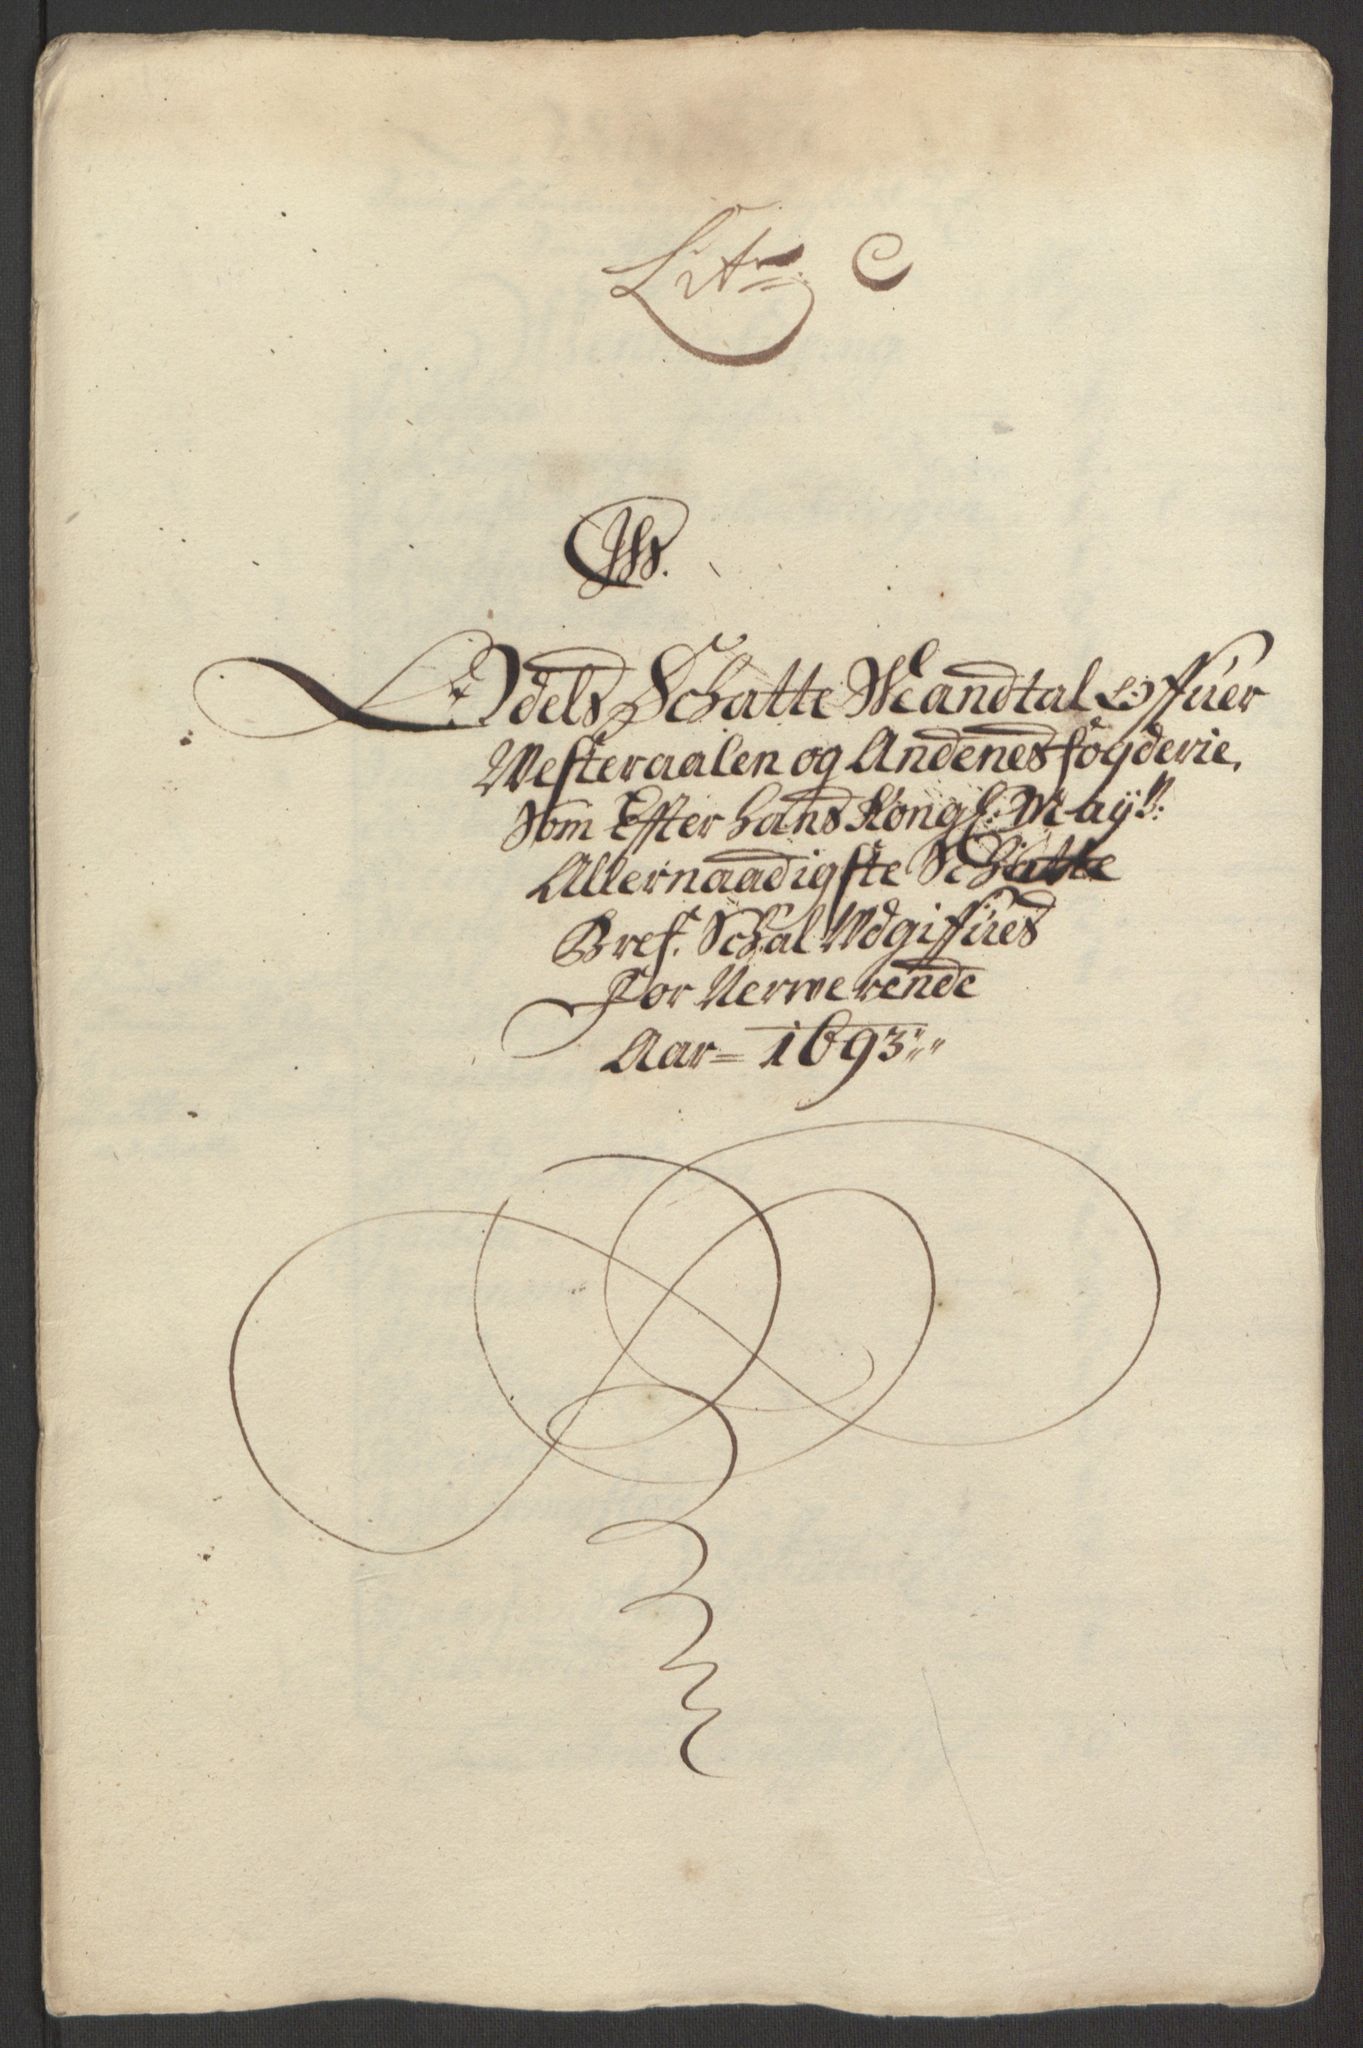 Litr. C
Ihs.
Odels Schatte Mandtal Offuer
Westeraalen og Andenes fogderie,
Som Effter hans Kongl. Mayts.
Allernaadigste Schatte
Bref. Schal Udgiffues
For Nerwerende
Aar= 1693